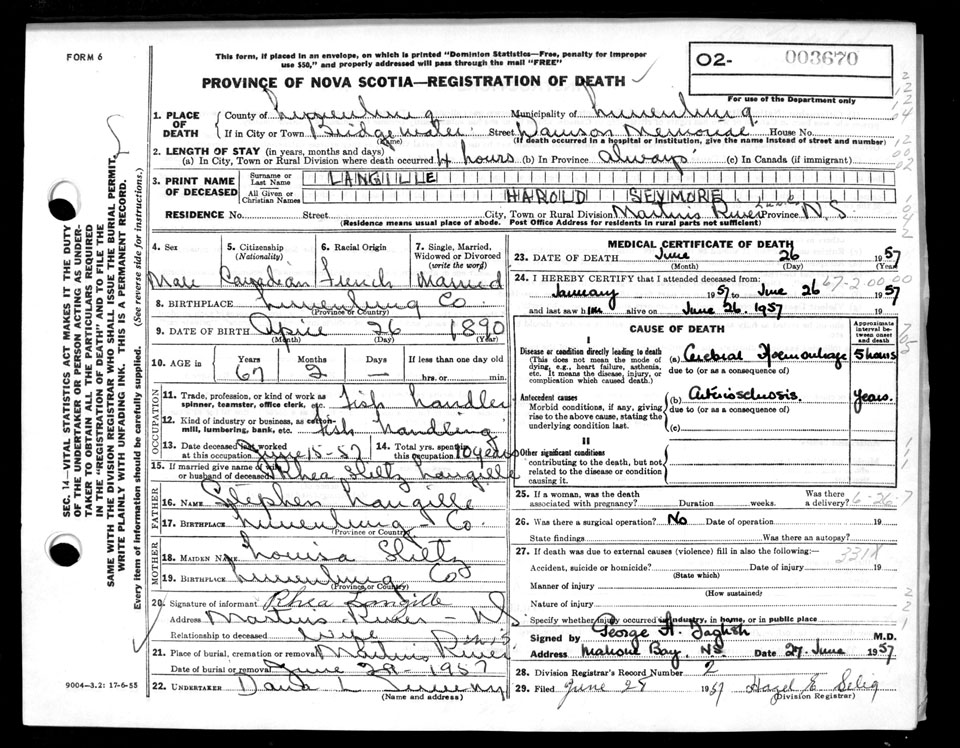 FORM 6
This form, if placed in an envelope, on which is printed "Dominion Statistics—Free, penalty for improper
use $50," and properly addressed will pass through the mail "FREE"
PROVINCE OF NOVA SCOTIA—REGISTRATION OF DEATH
O2- 003670
For use of the Department only
1. PLACE OF DEATH
County of Lunenburg Municipality of Lunenburg
If in City or Town Bridgewater Street Dawson Memorial House No.
(Name) (If death occurred in a hospital or institution, give the name instead of street and number)
2. LENGTH OF STAY (in years, months and days)
(a) In City, Town or Rural Division where death occurred 4 hours (b) In Province always (c) In Canada (if immigrant)
3. PRINT NAME OF DECEASED
Surname or Last Name LANGILLE
All Given or Christian Names HAROLD SEYMORE
RESIDENCE No. Street City, Town or Rural Division Martins River Lunb. Province N.S
(Residence means usual place of abode. Post Office Address for residents in rural parts not sufficient)
4. Sex
Male
5. Citizenship (Nationality)
Canadian
6. Racial Origin
French
7. Single, Married, Widowed or Divorced (write the word)
Married
8. BIRTHPLACE Lunenburg Co.
(Province or Country)
9. DATE OF BIRTH April 26 1890
(Month) (Day) (Year)
10. AGE in Years Months Days If less than one day old
67 2 — hrs. or min.
OCCUPATION
11. Trade, profession, or kind of work as spinner, teamster, office clerk, etc. Fish handler
12. Kind of industry or business, as cotton-mill, lumbering, bank, etc. fish handling
13. Date deceased last worked at this occupation June 15-57
14. Total yrs. spent in this occupation 10 years
15. If married give name of wife or husband of deceased Rhea Sletz Langille
FATHER
16. NAME Stephen Langille
17. BIRTHPLACE Lunenburg Co.
(Province or Country)
MOTHER
18. MAIDEN NAME Louisa Sletz
19. BIRTHPLACE Lunenburg Co
(Province or Country)
20. Signature of informant Rhea Langille
Address Martins River - NS
Relationship to deceased Wife
21. Place of burial, cremation or removal Martins River
Date of burial or removal June 28 1957
22. UNDERTAKER
(Name and address)
9004—3.2: 17-6-55
MEDICAL CERTIFICATE OF DEATH
23. DATE OF DEATH June 26 1957
(Month) (Day) (Year)
24. I HEREBY CERTIFY that I attended deceased from:
January 1957 to June 26 1957
and last saw him alive on June 26, 1957 19
CAUSE OF DEATH
Approximate interval between onset and death
I
Disease or condition directly leading to death (a) Cerebral Hoemorrhage 5 hours
(This does not mean the mode of dying, e.g., heart failure, asthenia, etc. It means the disease, injury, or complication which caused death.)
due to (or as a consequence of)
Antecedent causes (b) Arteriosclerosis. Years.
Morbid conditions, if any, giving rise to the above cause, stating the underlying condition last.
due to (or as a consequence of)
(c)
II
Other significant conditions
contributing to the death, but not related to the disease or condition causing it.
25. If a woman, was the death associated with pregnancy? Duration weeks. Was there a delivery? 6-26-7
26. Was there a surgical operation? No Date of operation 19
State findings Was there an autopsy?
27. If death was due to external causes (violence) fill in also the following:—
331X
Accident, suicide or homicide? Date of injury 19
(State which)
Manner of injury
(How sustained)
Nature of injury
Specify whether injury occurred in industry, in home, or in public place
Signed by George A. M.D.
Address Mahone Bay, NS Date 27 June 1957
28. Division Registrar's Record Number 2
29. Filed June 29 1957 Hazel E. Selig
(Division Registrar)
SEC. 14—VITAL STATISTICS ACT MAKES IT THE DUTY
OF THE UNDERTAKER OR PERSON ACTING AS UNDER-
TAKER TO OBTAIN ALL THE PARTICULARS REQUIRED
IN THE "REGISTRATION OF DEATH" AND TO FILE THE
SAME WITH THE DIVISION REGISTRAR WHO SHALL ISSUE THE BURIAL PERMIT.
WRITE PLAINLY WITH UNFADING INK. THIS IS A PERMANENT RECORD.
Every item of information should be carefully supplied. (See reverse side for instructions.)